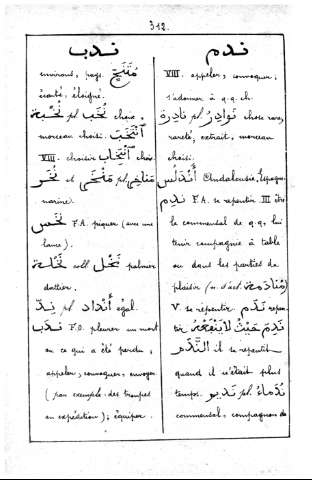 312.
ندب
environs, pays. مُنْتَجَع
écarté, éloigné.
نُخْبَة pl نُخَب choix,
morceau choisi. اِنْتَخَبَ
VIII. choisir اِنْتِخَاب choix
نُخَر et مَنْخَر pl مَنَاخِر
narine.
نَخَس F.A. piquer (avec une
lance).
نَخْلَة coll نَخْل palmier
dattier.
نِدّ pl أَنْدَاد égal.
نَدَب F.O. pleurer un mort
ou ce qui a été perdu;
appeler, convoquer, envoyer
(par exemple des troupes
en expédition); équiper.
ندم
VIII. appeler, convoquer;
s'adonner à q.q. ch.
نَادِرَة pl نَوَادِر chose rare,
rareté, extrait, morceau
choisi.
أَنْدَلُس Andalousie, Espagne.
نَدِمَ F.A. se repentir III être
le commensal de q.q., lui
tenir compagnie à table
ou dans les parties de
plaisir (n. d'act. مُنَادَمَة)
V. se repentir نَدَم repen-
tir نَدِمَ حَيْثُ لَا يَنْفَعُهُ
النَّدَم il se repentit
quand il n'était plus
temps. نَدِيم pl نُدَمَاء
commensal, compagnon de